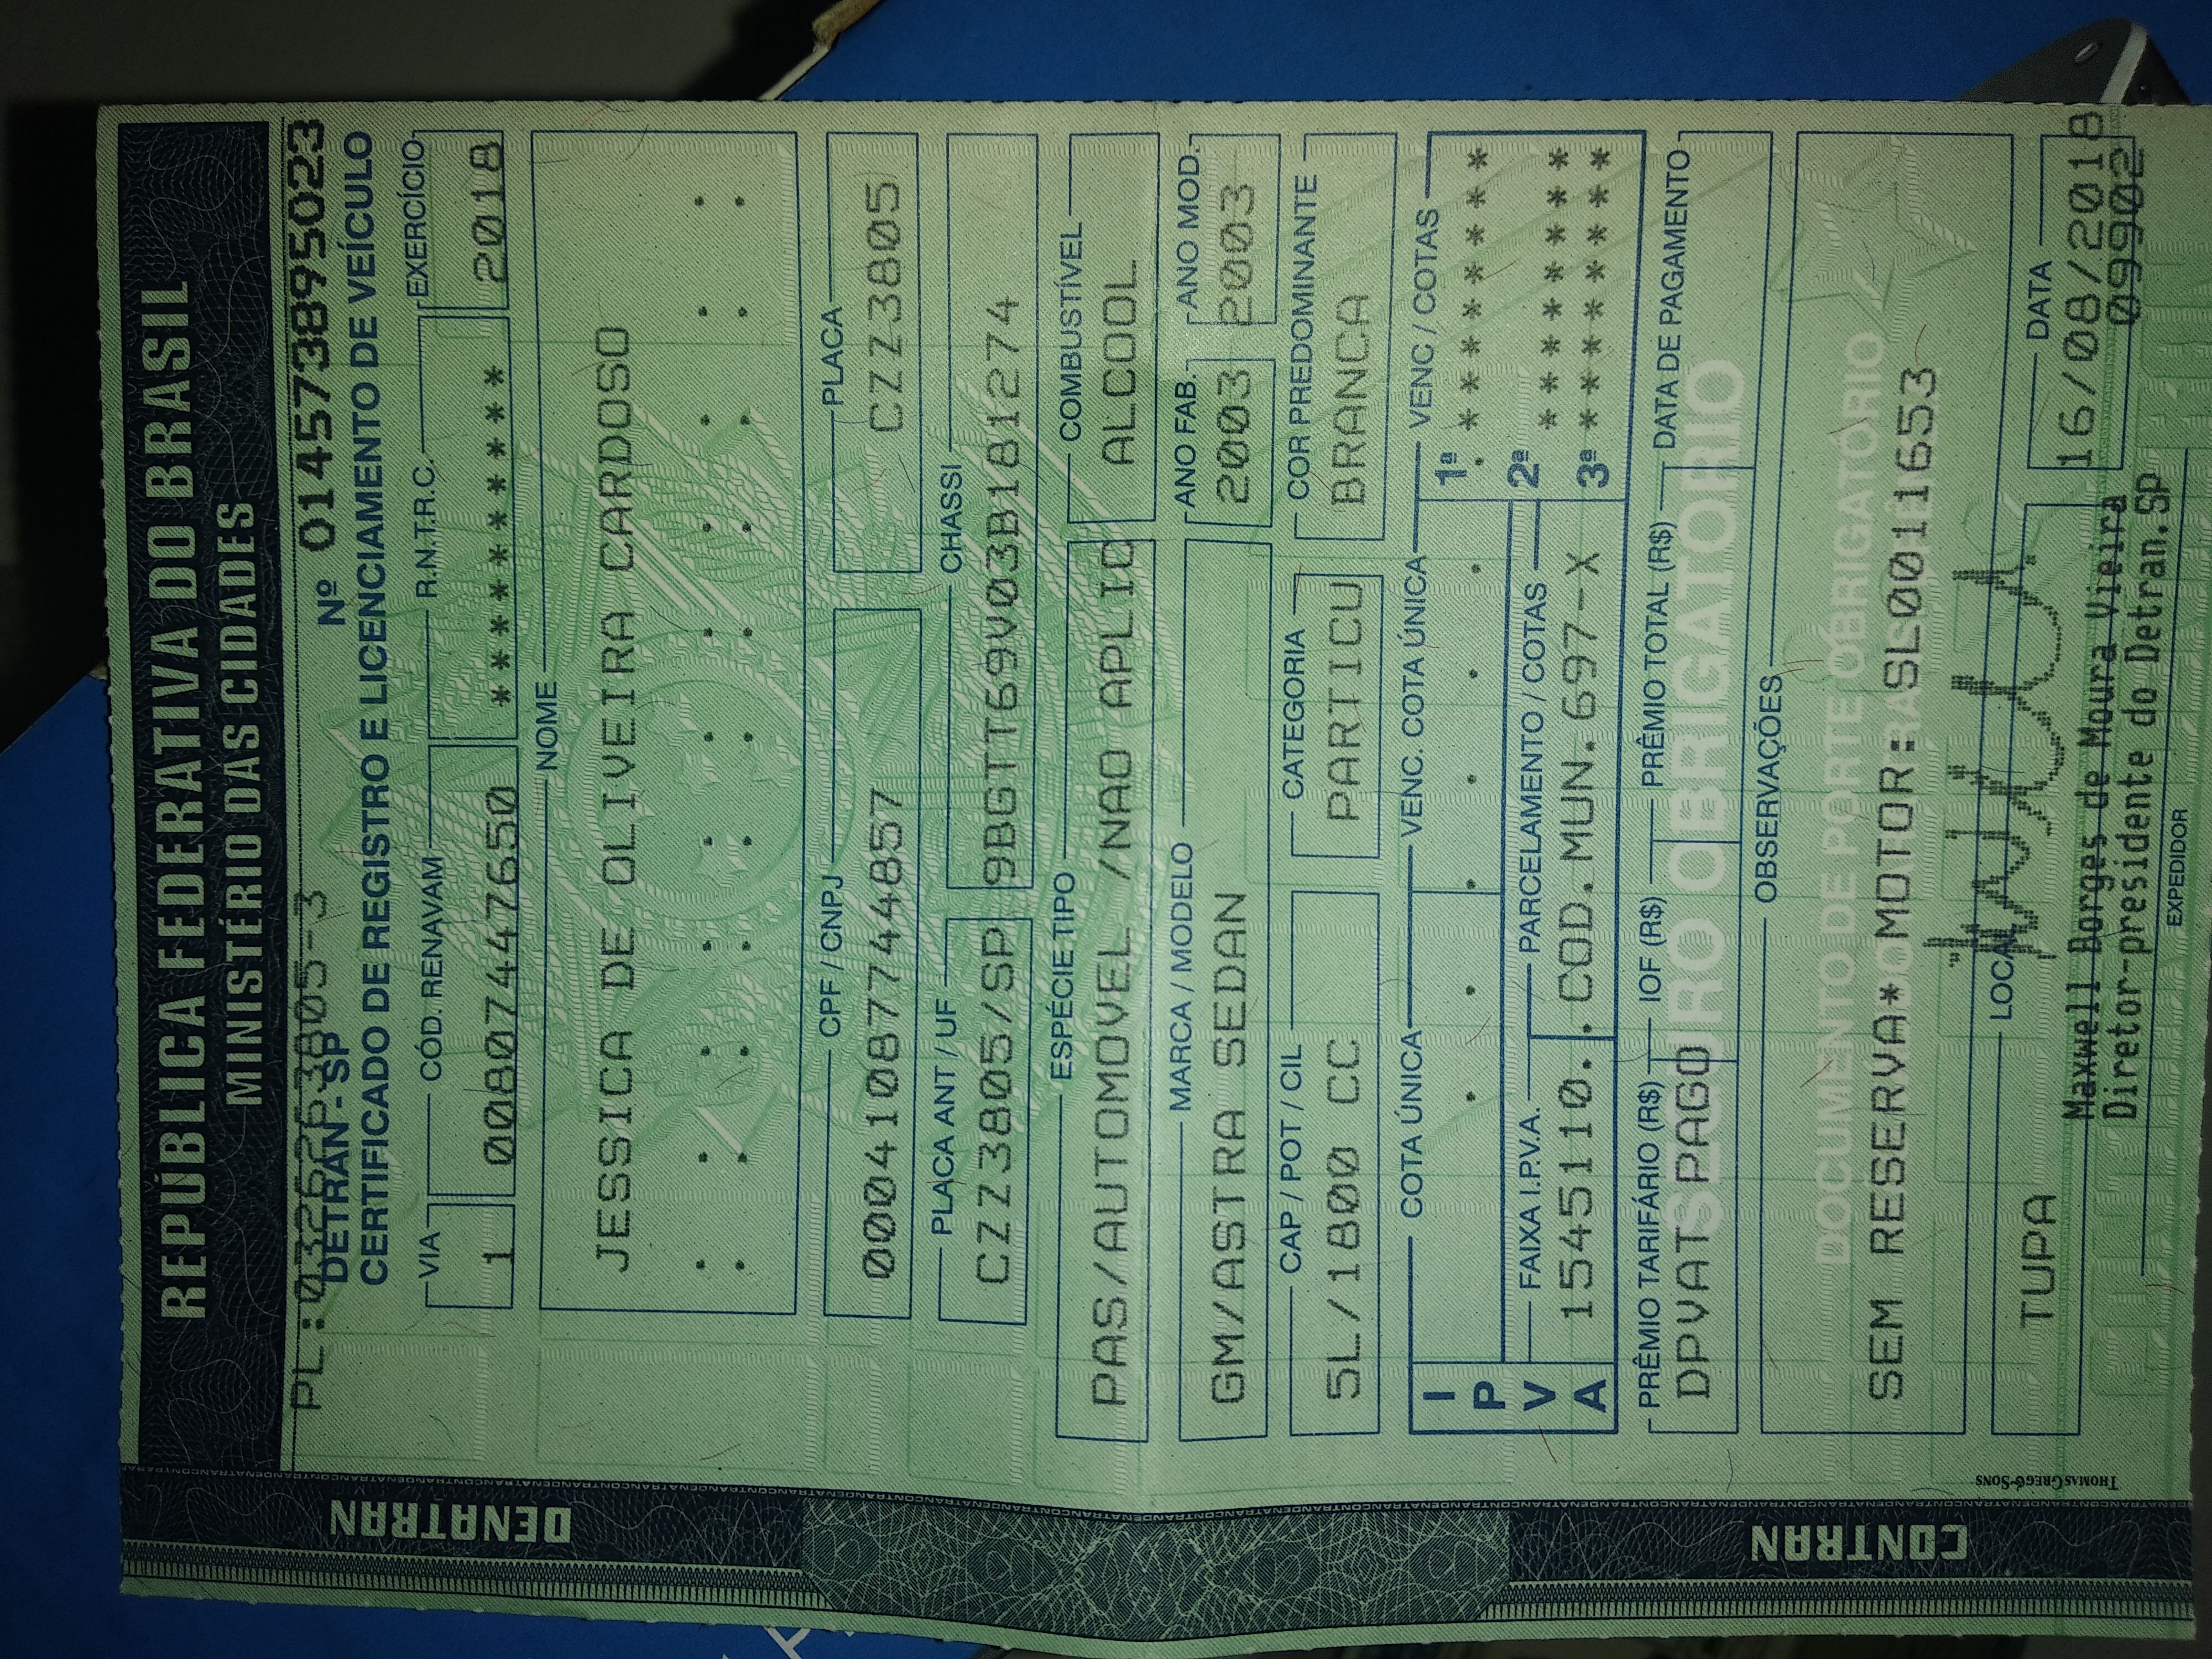 REPÚBLICA FEDERATIVA DO BRASIL
MINISTÉRIO DAS CIDADES
PL:0326263805-3
DETRAN - SP Nº 014573895023
CERTIFICADO DE REGISTRO E LICENCIAMENTO DE VEÍCULO
VIA CÓD. RENAVAM R.N.T.R.C. EXERCÍCIO
1 00807447650 *********** 2018
NOME
JESSICA DE OLIVEIRA CARDOSO
CPF / CNPJ PLACA
00041087744857 CZZ3805
PLACA ANT / UF CHASSI
CZZ3805/SP 9BGTT69V03B181274
ESPÉCIE TIPO COMBUSTÍVEL
PAS/AUTOMOVEL /NAO APLIC ALCOOL
MARCA / MODELO ANO FAB. ANO MOD.
GM/ASTRA SEDAN 2003 2003
CAP / POT / CIL CATEGORIA COR PREDOMINANTE
5L/1800 CC PARTICU BRANCA
IPVA
COTA ÚNICA VENC. COTA ÚNICA VENC / COTAS
1ª **********
FAIXA I.P.V.A. PARCELAMENTO / COTAS 2ª **********
1545110. .COD.MUN.697-X 3ª **********
PRÊMIO TARIFÁRIO (R$) IOF (R$) PRÊMIO TOTAL (R$) DATA DE PAGAMENTO
DPVAT PAGO
SEGURO OBRIGATÓRIO
OBSERVAÇÕES
DOCUMENTO DE PORTE OBRIGATÓRIO
SEM RESERVA*MOTOR: SL0011653
LOCAL DATA
TUPA 16/08/2018
099902
Maxwell Borges de Moura Vieira
Diretor-presidente do Detran.SP
EXPEDIDOR
DENATRAN
CONTRAN
THOMAS GREG & SONS